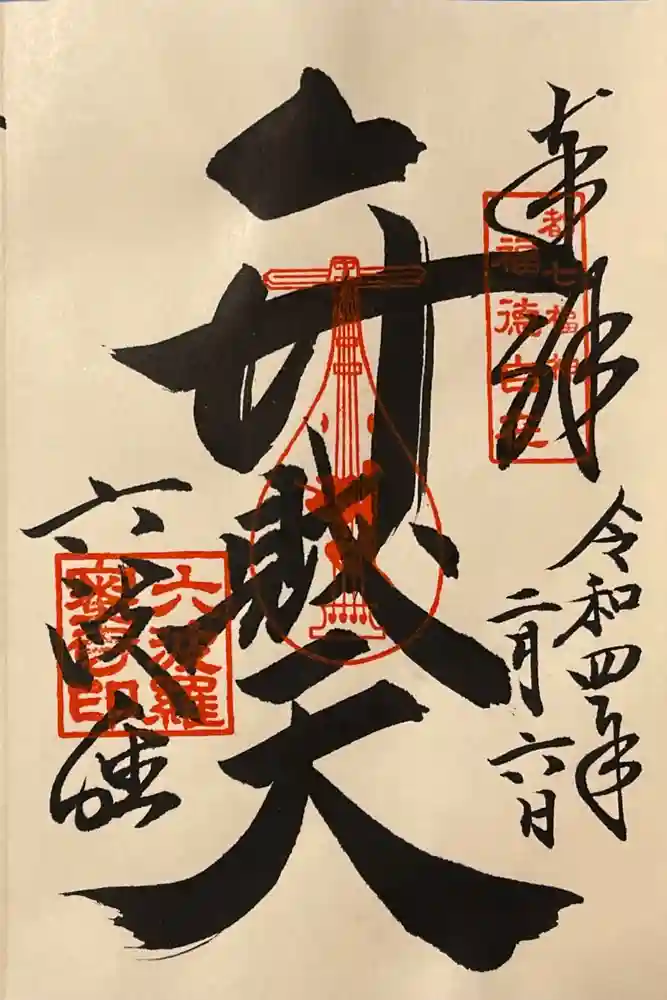 奉拝
都七福神
福徳自在
令和四年
二月六日
弁財天
六波羅
六波羅
蜜寺印